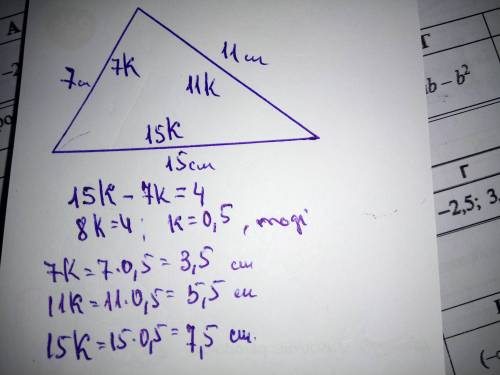 А
Г
-2
аb – b²
11 см
7 см
7k
11k
15k
15 см
15k - 7k = 4
8k = 4; k = 0,5, тоді
7k = 7·0,5 = 3,5 см
11k = 11·0,5 = 5,5 см
15k = 15·0,5 = 7,5 см.
Г
–2,5; 3,